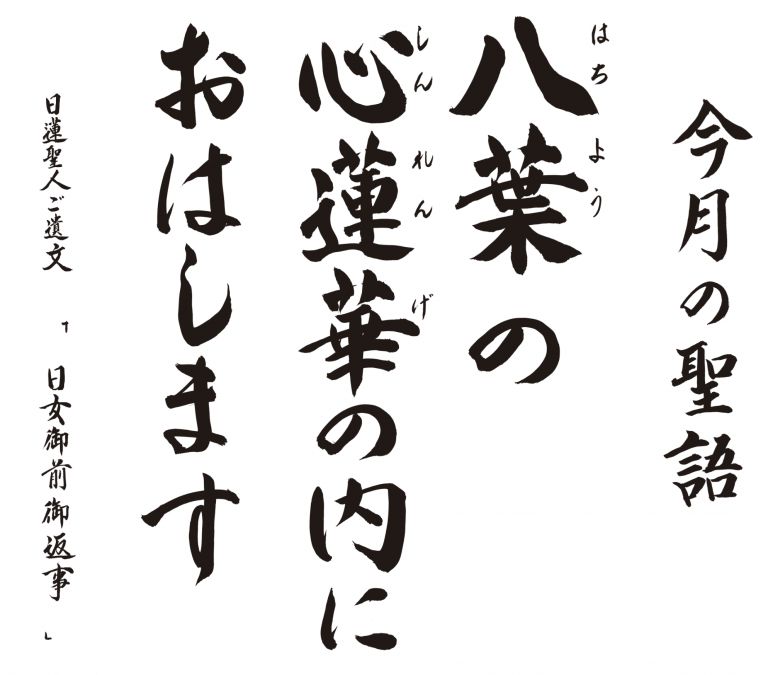 今月の聖語
八葉の
はちよう
心蓮華の内に
しんれんげ
おはします
日蓮聖人ご遺文 「日女御前御返事」